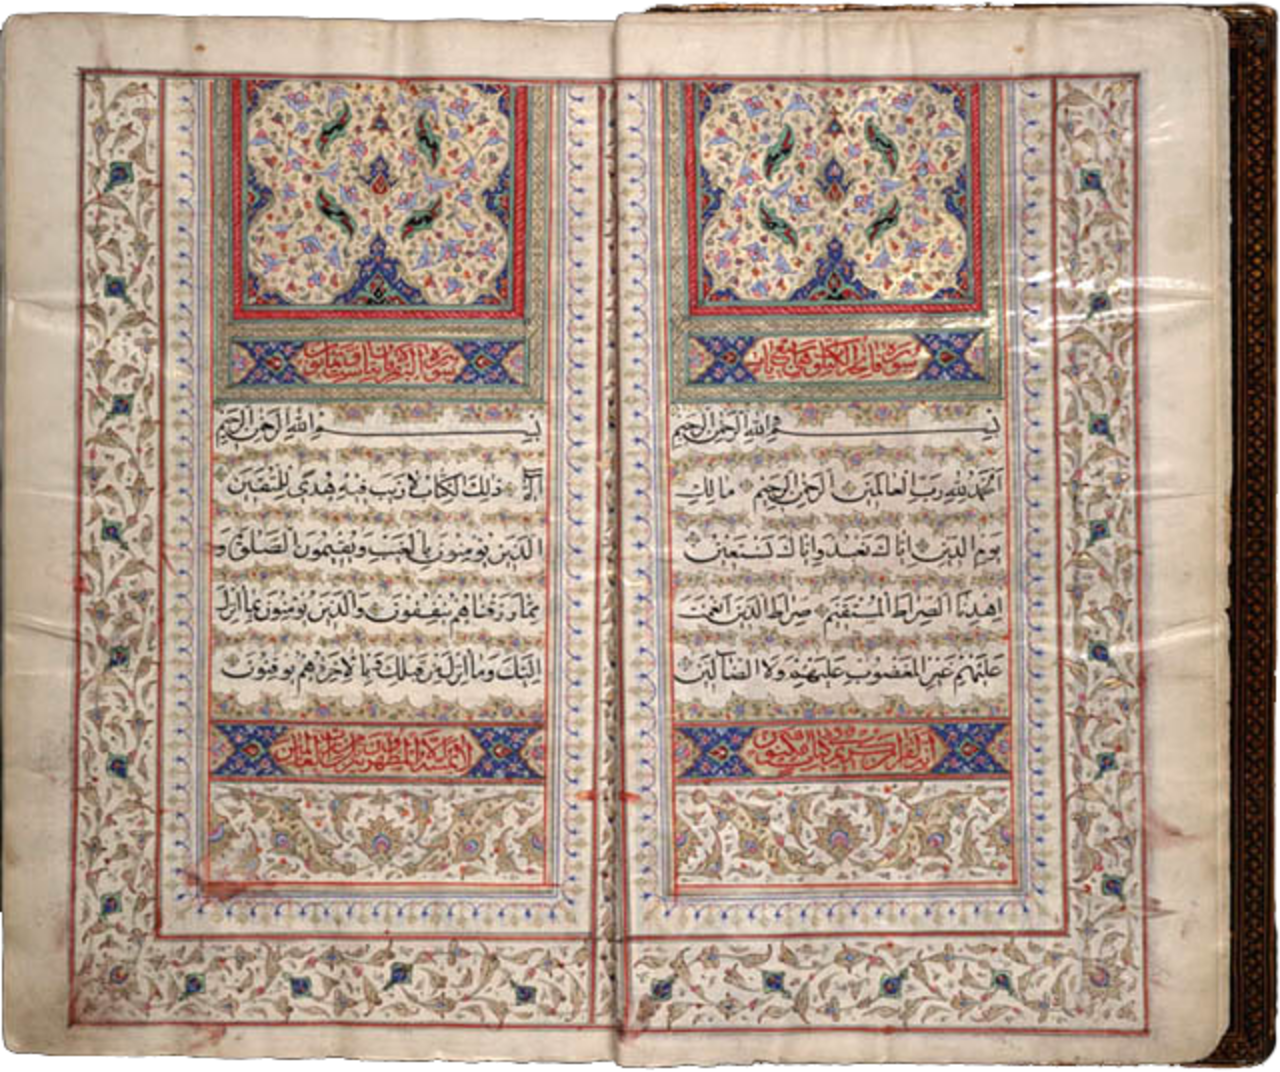 سورة فاتحة الكتاب
بسم الله الرحمن الرحيم
الحمد لله رب العالمين الرحمن الرحيم مالك
يوم الدين اياك نعبد واياك نستعين
اهدنا الصراط المستقيم صراط الذين انعمت
عليهم غير المغضوب عليهم ولا الضالين
انه لقران كريم في كتاب مكنون
سورة البقرة
بسم الله الرحمن الرحيم
الم ذلك الكتاب لا ريب فيه هدى للمتقين
الذين يؤمنون بالغيب ويقيمون الصلوة و
مما رزقناهم ينفقون والذين يؤمنون بما انزل
اليك وما انزل من قبلك وبالاخرة هم يوقنون
لا يمسه الا المطهرون تنزيل من رب العالمين